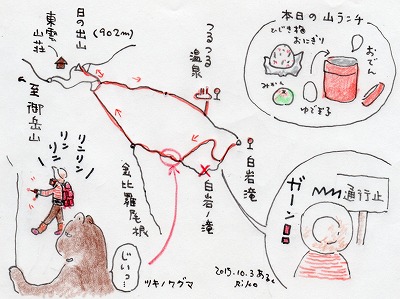 日の出山
(902m)
東雲山荘
至御岳山
つるつる温泉
本日の山ランチ
ひじき梅おにぎり
おでん
みかん
ゆでたまご
白岩滝
白岩ノ滝
金比羅尾根
リン
リン
リンリン
じいっ…
ツキノワグマ
ガーン!!
通行止
2015.10.3 あるく
Riko